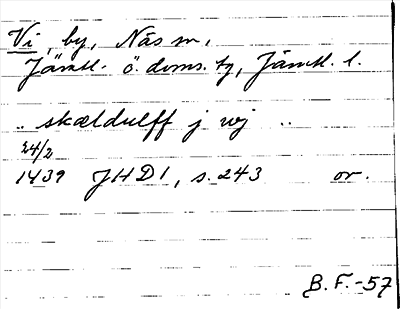 Vi, by, Näs sn,
Jämtl. ö. doms. tg, Jämtl. l.
.. skældulff j wj ..
24/2
1439 JHD1, s. 243 or.
B. F. -57